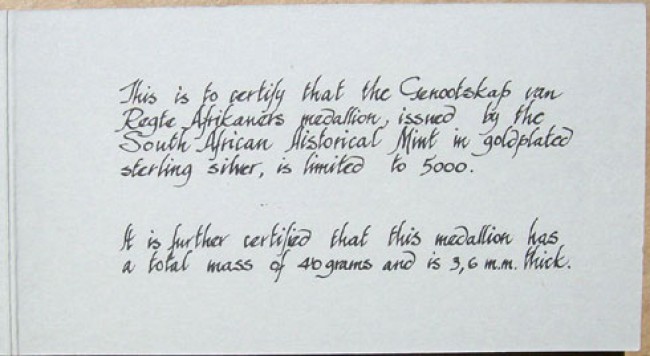 This is to certify that the Genootskap van
Regte Afrikaners medallion, issued by the
South African Historical Mint in goldplated
sterling silver, is limited to 5000.
It is further certified that this medallion has
a total mass of 40 grams and is 3,6 m.m. thick.